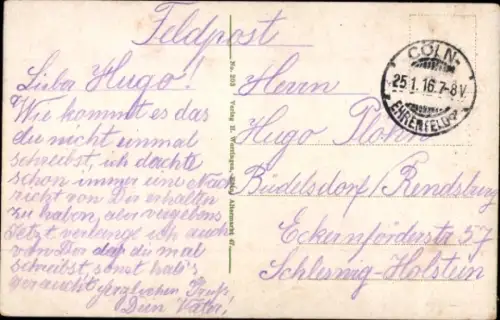 Feldpost
Lieber Hugo!
Wie kommt es das
du nicht einmal
schreibst, ich dachte
schon immer eine Nach
richt von Dir erhalten
zu haben, aber vergebens
Jetzt verlange ich auch
von Dir daß du mal
schreibst, sonst hat's
geraucht
Dein Vater!
No. 203 Verlag H. Worringen, Cöln, Altermarkt 47
CÖLN-
25.1.16.7-8V.
EHRENFELD
Herrn
Hugo
Büdelsdorf/Rendsburg
Eckernförderstr 57
Schleswig-Holstein